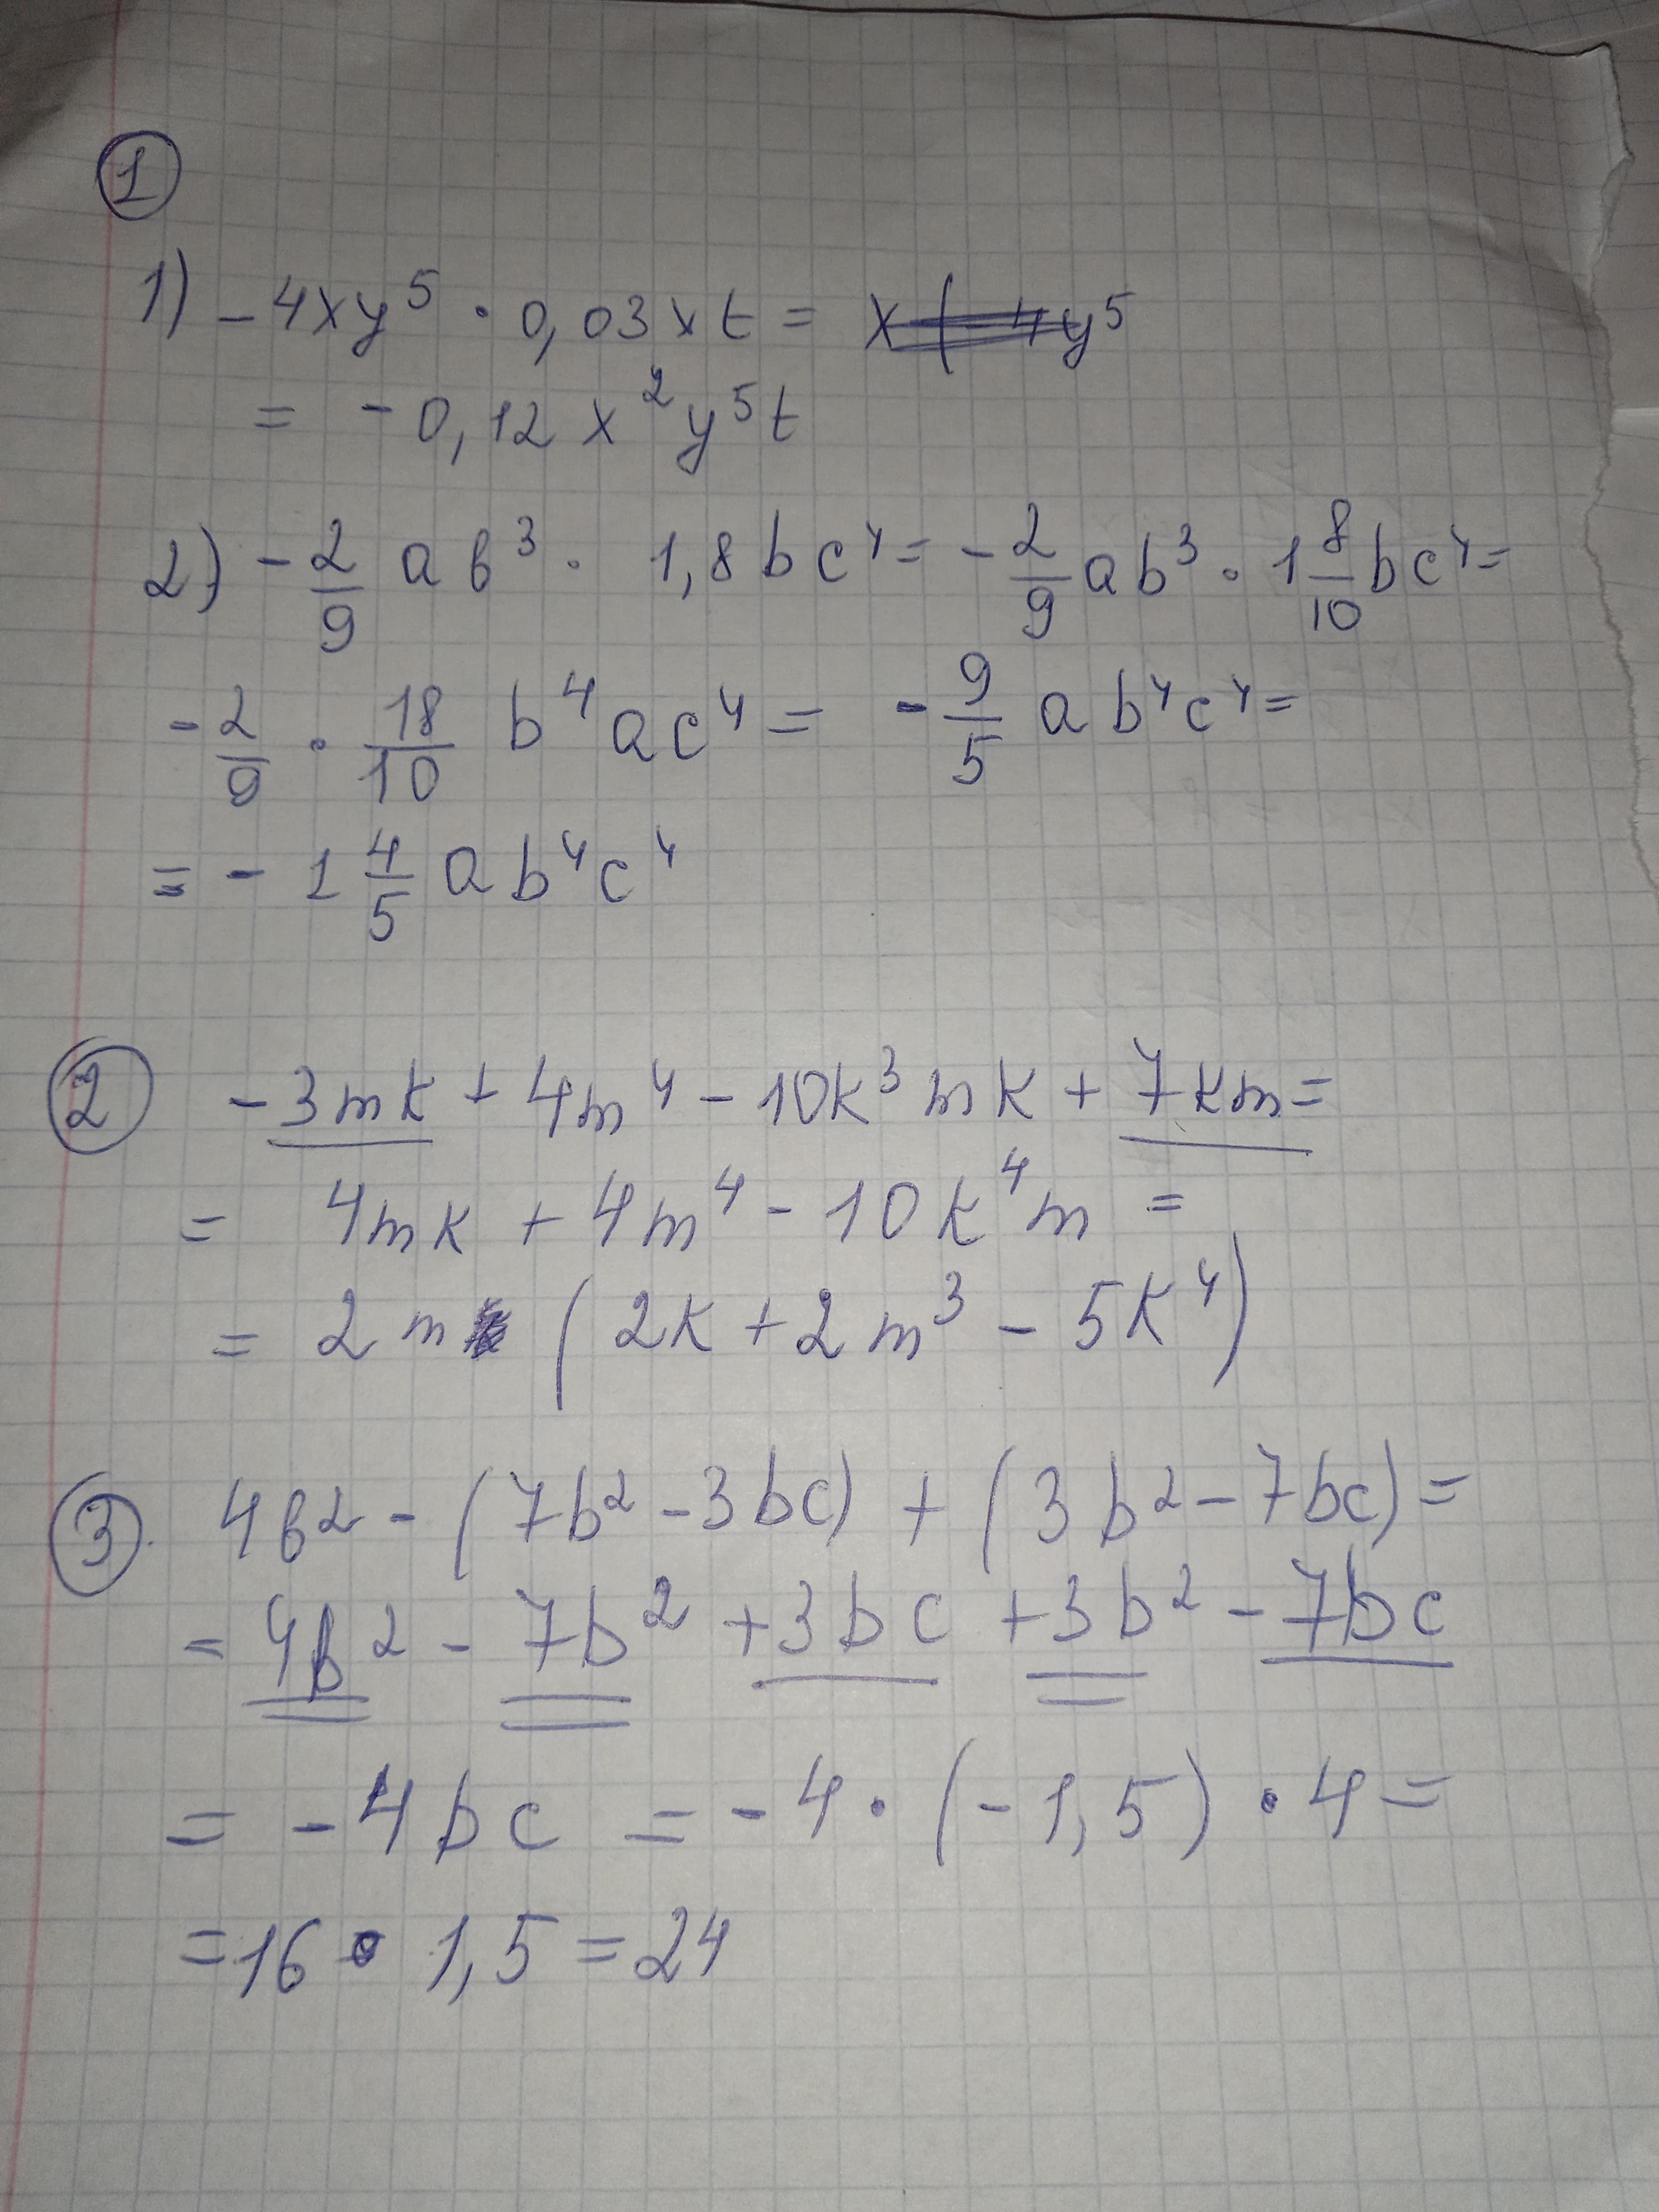 1
1) -4xy⁵ · 0,03xt = x(-4y⁵
= -0,12x²y⁵t
2) -2/9 ab³ · 1,8bc⁴ = -2/9 ab³ · 1 8/10 bc⁴ =
-2/9 · 18/10 b⁴ac⁴ = -9/5 ab⁴c⁴ =
= -1 4/5 ab⁴c⁴
2 -3mk + 4m⁴ - 10k³mk + 7km =
= 4mk + 4m⁴ - 10k⁴m =
= 2m (2k + 2m³ - 5k⁴)
3. 4b² - (7b² - 3bc) + (3b² - 7bc) =
= 4b² - 7b² + 3bc + 3b² - 7bc
= -4bc = -4 · (-1,5) · 4 =
= 16 · 1,5 = 24